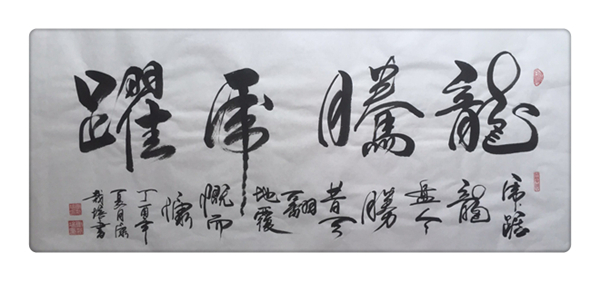 龍騰虎躍
虎踞
龍
盤今
勝
昔天
翻
地覆
慨而
慷
丁酉年
夏月
書